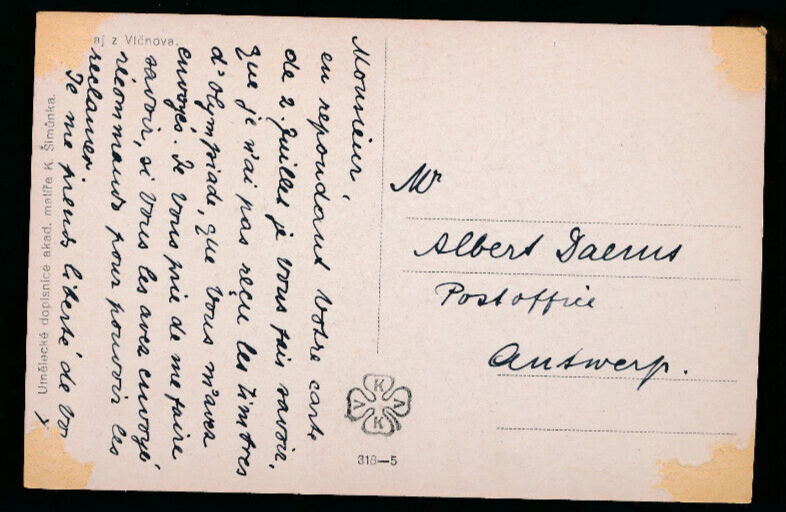 aj z Vlčnova.
Umělecké dopisnice akad. malíře K. Šimůnka.
Monsieur
en repondant Votre carte
de 2. Juillet je Vous fais savoir,
que je n'ai pas reçu les timbres
d'Olympiade, que Vous m'avez
envoyés. Je Vous prie de me faire
savoir, si Vous les avez envoyé
récommands pour pouvoir les
reclamer.
Je me prends liberté de
Mr
Albert Daems
Postoffice
Antwerp.
K
A A
K
318—5